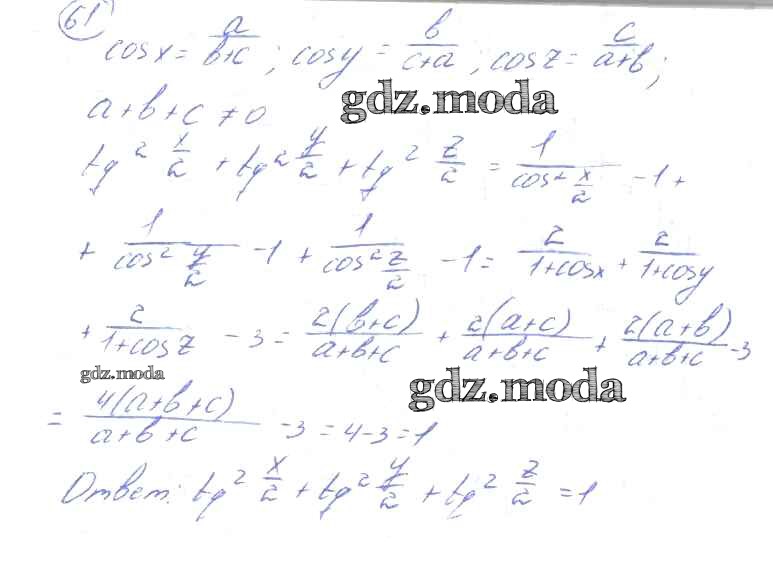 61 cosx = a/(b+c); cosy = b/(c+a); cosz = c/(a+b);
a+b+c ≠ 0
gdz.moda
tg² x/2 + tg² y/2 + tg² z/2 = 1/(cos² x/2) -1 +
+ 1/(cos² y/2) -1 + 1/(cos² z/2) -1 = 2/(1+cosx) + 2/(1+cosy)
+ 2/(1+cosz) - 3 = 2(b+c)/(a+b+c) + 2(a+c)/(a+b+c) + 2(a+b)/(a+b+c) -3
gdz.moda
gdz.moda
= 4(a+b+c)/(a+b+c) -3 = 4-3 = 1
Ответ: tg² x/2 + tg² y/2 + tg² z/2 = 1